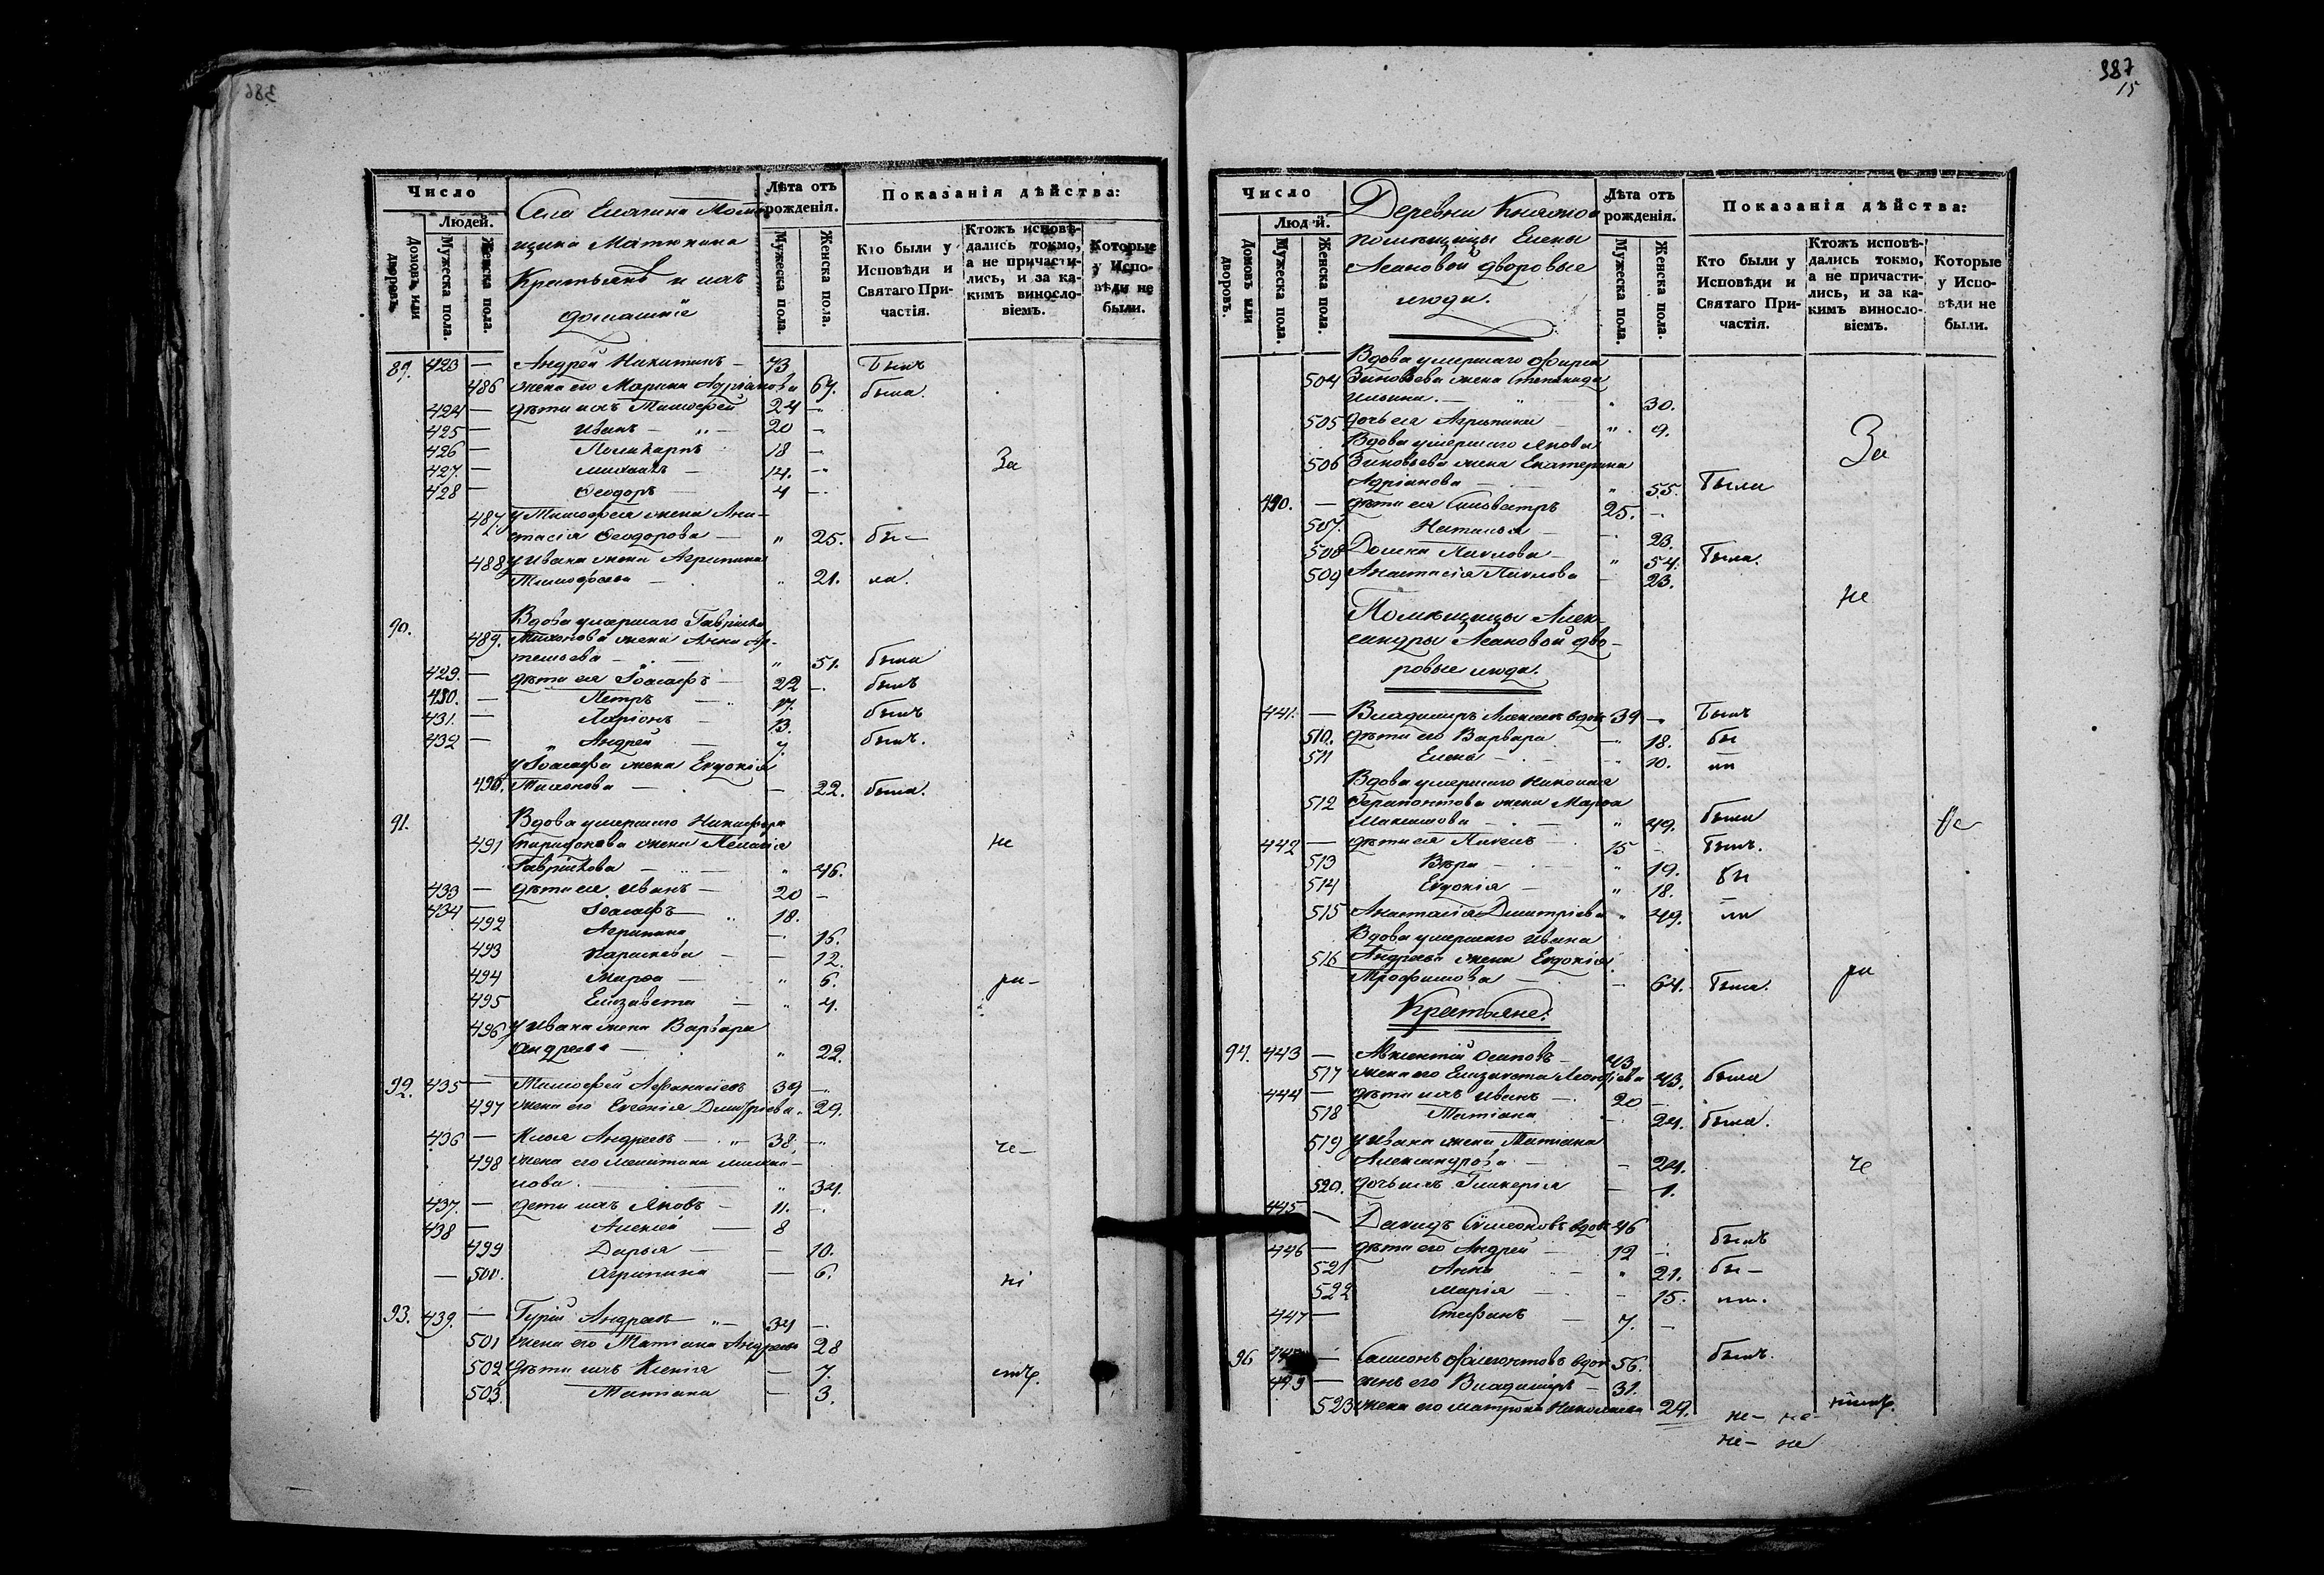 386
Число
Людей.
Домовъ или дворовъ.
Мужеска пола.
Женска пола.
Села
Матюнина
Крестьяне и ихъ
домашніе
Лѣта отъ рожденія.
Мужеска пола.
Женска пола.
Показанія дѣйства:
Кто были у Исповѣди и Святаго Причастія.
Ктожъ исповѣдались токмо, а не причастились, и за какимъ винословіемъ.
Которые у Исповѣди не были.
89. 423 — Андрей Никитинъ — 73 Былъ
486 жена его Марина Адріанова 67. была.
424 — дѣти ихъ Тимофей 24 —
425 — Иванъ — 20 —
426 — Поликарпъ 18 —
427. — Михаилъ — 14. — За
428 — Ѳеодоръ — 4 —
487 у Тимофея жена Ана-
стасія Ѳеодорова — " 25. бы-
488 у Ивана жена Агрипина
Тимофеева — 21. ла.
90. Вдова умершаго Гавріила
489. жена Анна Ар-
темьева — " 51. была
429. — дѣти ея Іоасафъ — 22 — былъ
430. — Петръ — 17.
431. — Ларіонъ — 13. былъ
432 — " Андрей — 7. былъ.
у Іоасафа жена Евдокія
490. — — 22. была.
91. Вдова умершаго Никифора
491 жена Пелагія не
Гаврилова — " 46.
433 — дѣти ея Иванъ — 20 —
434 — Іоасафъ — 18.
492 Агрипина — 16.
493 Параскева — — 12.
494 Марѳа — " 6. ри-
495 Елизавета — " 4.
496 у Ивана жена Варвара
Андреева — " 22.
92. 435 — Тимофей Афанасіевъ 39 —
497 жена его Евгенія Димитріева 29.
436 — Андреевъ — 38 — че-
498 жена его
" 34.
437. — дети ихъ Яковъ — 11. —
438 — Алексей — 8
499 Дарья — — 10.
— 500. Агрипина — 6. ні
93. 439. — Гурій Андреевъ — 34 —
501 жена его Татіана Андреева 28
502 дѣти ихъ Ксенія — 7.
503. Татіана — 3.
387
15
Число
Людей.
Домовъ или дворовъ.
Мужеска пола.
Женска пола.
Деревни
помѣщицы Елены
дворовые
люди.
Лѣта отъ рожденія.
Мужеска пола.
Женска пола.
Показанія дѣйства:
Кто были у Исповѣди и Святаго Причастія.
Ктожъ исповѣдались токмо, а не причастились, и за какимъ винословіемъ.
Которые у Исповѣди не были.
Вдова умершаго Фирса
504 Зиновьева жена Степанида
Ильина. — 30.
505 дочь ея Агрипина — " 9. За
Вдова умершаго Якова
506 Зиновьева жена Екатерина
Адріанова — — " 55. Были
440. — дѣти ея Силовестръ 25. —
507. Наталья — 23.
508 Домна Павлова — " 54. Была.
509 Анастасія Павлова — 23.
не
Помѣщицы Алек-
сандры дво-
ровые люди.
441. — Владимиръ вдов 39 — Былъ
510. дѣти его Варвара — 18. бы
511 Елена — — 10. ли
Вдова умершаго Николая
512 Ферапонтова жена Марѳа
— " 49. была не
442 — дѣти ея Павелъ — 15 — Былъ.
513 Вѣра — — " 19. бы
514 Евдокія — " 18.
515 Анастасія Димитріева " 49. ли
Вдова умершаго Ивана
516 Андреева жена Евдокія
Трофимова — — 64. Была. ри
Крестьяне:
94. 443 — Авксентій Осиповъ — 43
517 жена его Елизавета 43. была
444 — дѣти ихъ Иванъ — 20 —
518 Татіана — 24. была.
519 у Ивана жена Татіана
Александрова — — 24. че
520. дочь ихъ Гликерія — 1.
445 — Давидъ Симеоновъ вдов 46
446 — дѣти его Андрей — 12 — былъ
521 Анна — " 21. бы —
522 Марія — — 15. ли.
447 — Стефанъ — 7. —
96 — вдов 56. былъ.
449 — сынъ его Владиміръ — 31.
523 жена его Матрона Николаева 29.
не- не-
не- не